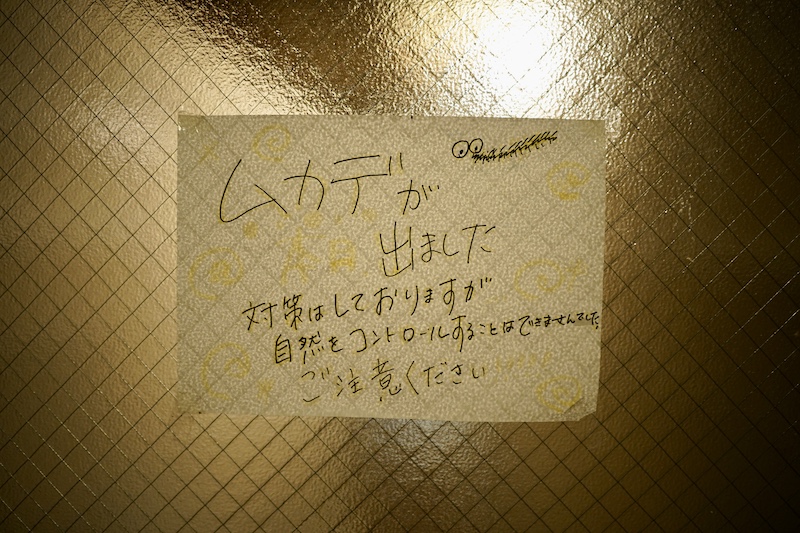 ムカデが
出ました
対策はしておりますが
自然をコントロールすることはできませんでした。
ご注意ください